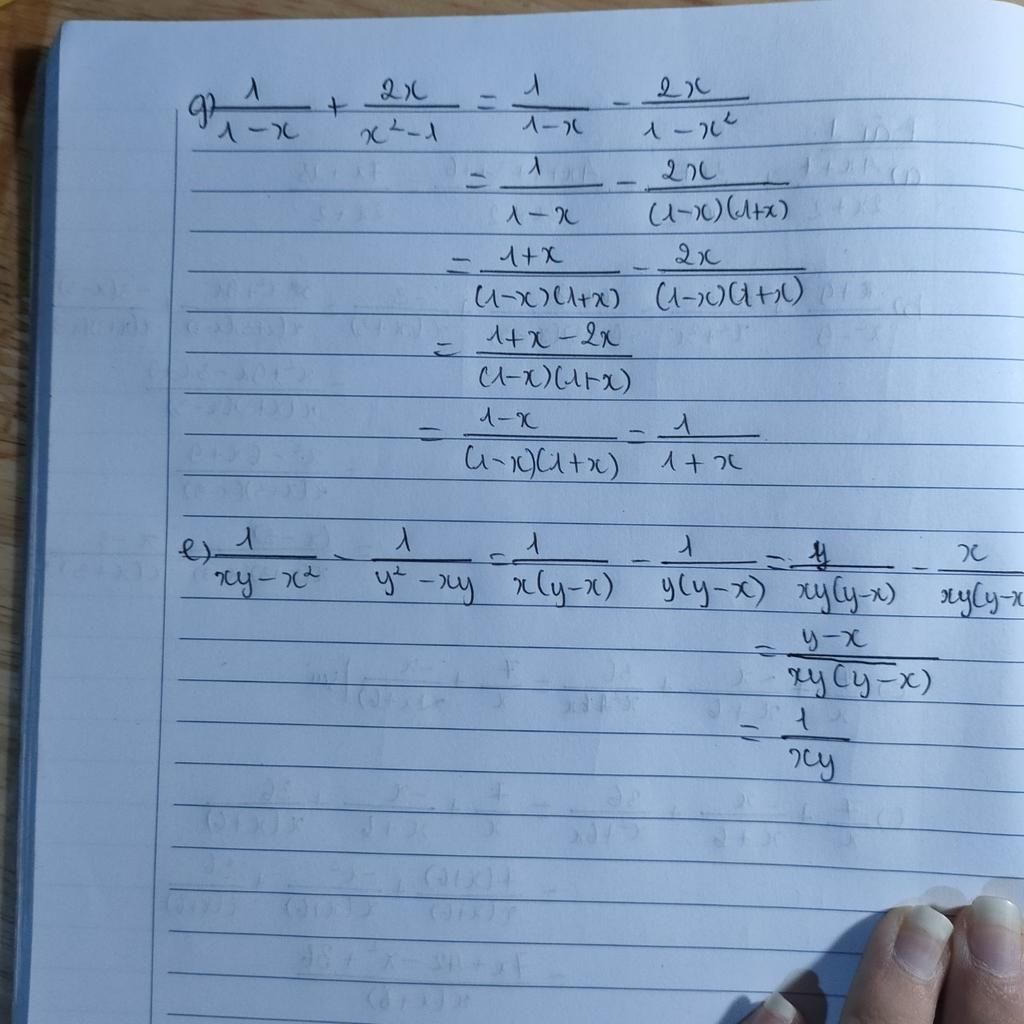 g) 1/(1-x) + 2x/(x²-1) = 1/(1-x) - 2x/(1-x²)
= 1/(1-x) - 2x/((1-x)(1+x))
= (1+x)/((1-x)(1+x)) - 2x/((1-x)(1+x))
= (1+x-2x)/((1-x)(1+x))
= (1-x)/((1-x)(1+x)) = 1/(1+x)
e) 1/(xy-x²) - 1/(y²-xy) = 1/(x(y-x)) - 1/(y(y-x)) = y/(xy(y-x)) - x/(xy(y-x
= (y-x)/(xy(y-x))
= 1/(xy)